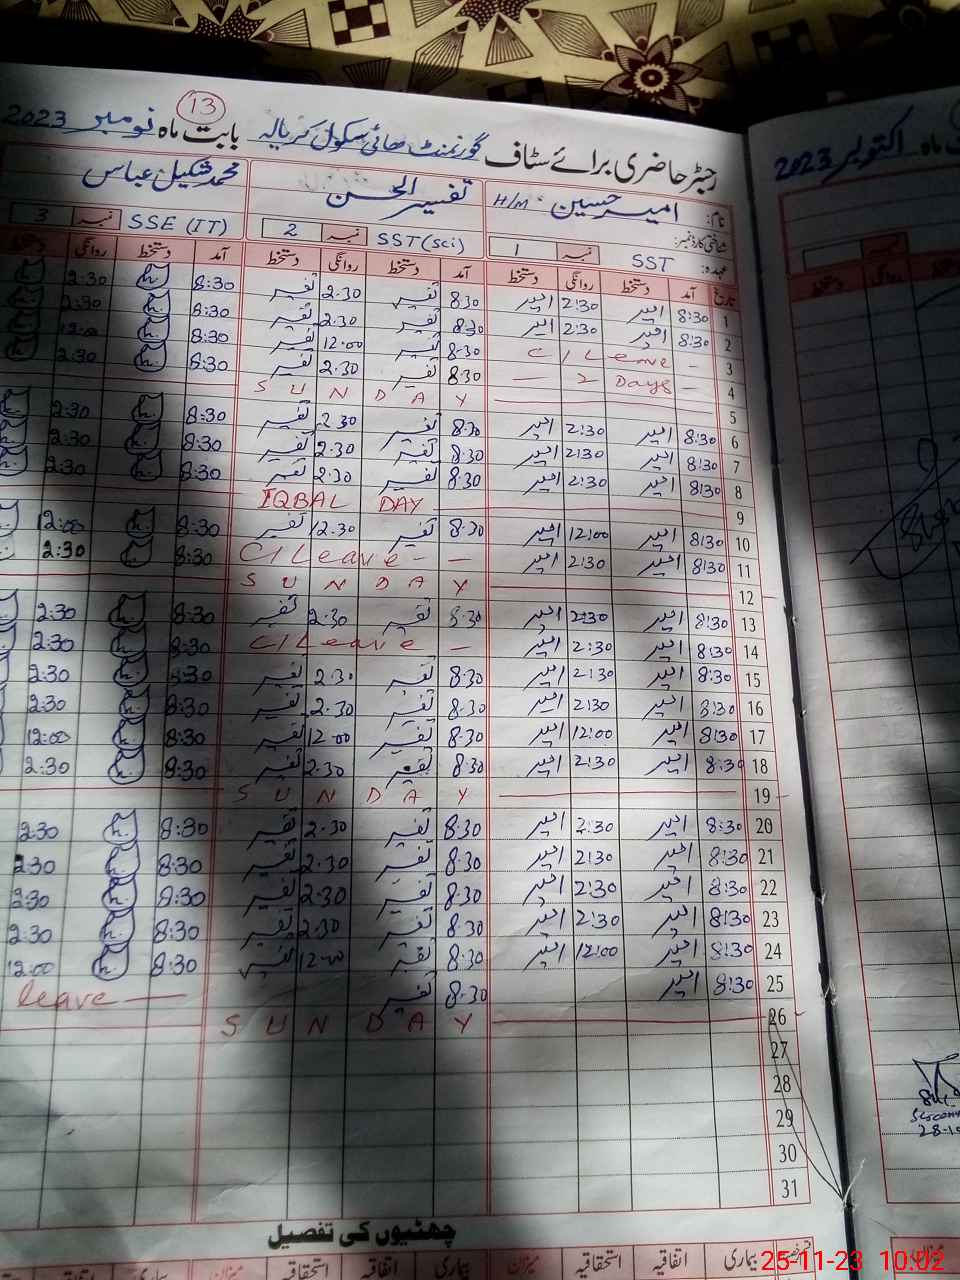 13
رجسٹر حاضری برائے سٹاف گورنمنٹ ہائی سکول کریالہ بابت ماہ نومبر 2023
نام: امیر حسین H/M تفسیر الحسن محمد شکیل عباس
شناختی کارڈ نمبر:
عہدہ: SST نمبر 1 SST (Sci) نمبر 2 SSE (IT) نمبر 3
تاریخ آمد دستخط روانگی دستخط آمد دستخط روانگی دستخط آمد دستخط روانگی دستخط
1 8:30 امیر 2:30 امیر 8.30 تفسیر 2.30 تفسیر 8:30 2:30
2 8:30 امیر 2:30 امیر 8.30 تفسیر 2.30 تفسیر 8:30 2:30
3 C/Leave 8.30 تفسیر 12.00 تفسیر 8:30 12:00
4 2 Days 8.30 تفسیر 2.30 تفسیر 8:30 2:30
5 SUNDAY
6 8:30 امیر 2:30 امیر 8.30 تفسیر 2.30 تفسیر 8:30 2:30
7 8:30 امیر 2:30 امیر 8.30 تفسیر 2.30 تفسیر 8:30 2:30
8 8:30 امیر 2:30 امیر 8.30 تفسیر 2.30 تفسیر 8:30 2:30
9 IQBAL DAY
10 8:30 امیر 12:00 امیر 8.30 تفسیر 12.30 تفسیر 8:30 12:00
11 8:30 امیر 2:30 امیر C/Leave 8:30 2:30
12 SUNDAY
13 8:30 امیر 2:30 امیر 8.30 تفسیر 2.30 تفسیر 8:30 2:30
14 8:30 امیر 2:30 امیر C/Leave 8:30 2:30
15 8:30 امیر 2:30 امیر 8.30 تفسیر 2.30 تفسیر 8:30 2:30
16 8:30 امیر 2:30 امیر 8.30 تفسیر 2.30 تفسیر 8:30 2:30
17 8:30 امیر 12:00 امیر 8.30 تفسیر 12.00 تفسیر 8:30 12:00
18 8:30 امیر 2:30 امیر 8.30 تفسیر 2.30 تفسیر 8:30 2:30
19 SUNDAY
20 8:30 امیر 2:30 امیر 8.30 تفسیر 2.30 تفسیر 8:30 2:30
21 8:30 امیر 2:30 امیر 8.30 تفسیر 2.30 تفسیر 8:30 2:30
22 8:30 امیر 2:30 امیر 8.30 تفسیر 2.30 تفسیر 8:30 2:30
23 8:30 امیر 2:30 امیر 8.30 تفسیر 2.30 تفسیر 8:30 2:30
24 8:30 امیر 12:00 امیر 8.30 تفسیر 12.00 تفسیر 8:30 12:00
25 8:30 امیر 8.30 تفسیر leave
26 SUNDAY
27
28
29
30
31
چھٹیوں کی تفصیل
بیماری اتفاقیہ استحقاقیہ میزان بیماری اتفاقیہ استحقاقیہ میزان بیماری
ماہ اکتوبر 2023
دستخط روانگی
25-11-23 10:02